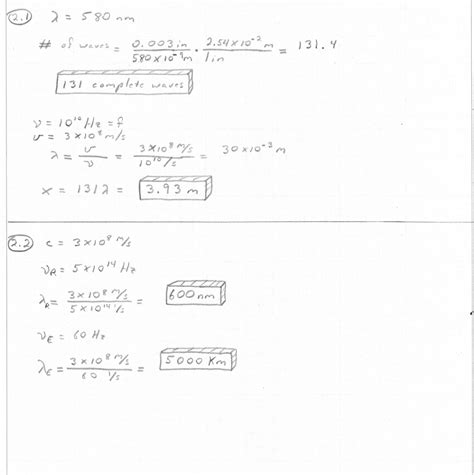 2.1 λ = 580 nm
# of waves = 0.003in / 580×10⁻⁹m · 2.54×10⁻² m / 1in = 131.4
131 complete waves
ν = 10¹⁰ Hz = f
v = 3×10⁸ m/s
λ = v / ν = 3×10⁸ m/s / 10¹⁰ 1/s = 30×10⁻³ m
x = 131λ = 3.93 m
2.2 c = 3×10⁸ m/s
ν_R = 5×10¹⁴ Hz
λ_R = 3×10⁸ m/s / 5×10¹⁴ 1/s = 600nm
ν_E = 60 Hz
λ_E = 3×10⁸ m/s / 60 1/s = 5000 Km